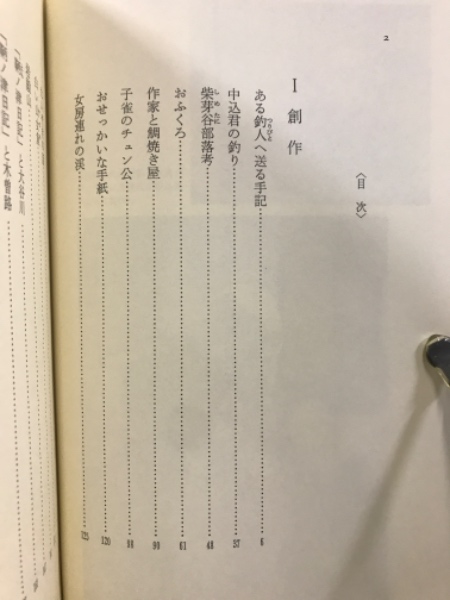 2
〈目 次〉
I 創 作
ある釣人へ送る手記 6
つりびと
中込君の釣り 37
柴芽谷部落考 48
しめたに
おふくろ 61
作家と鯛焼き屋 90
子雀のチュン公 98
おせっかいな手紙 120
女房連れの渓 125
日記」と大谷川
ノ津日記」と木曽路